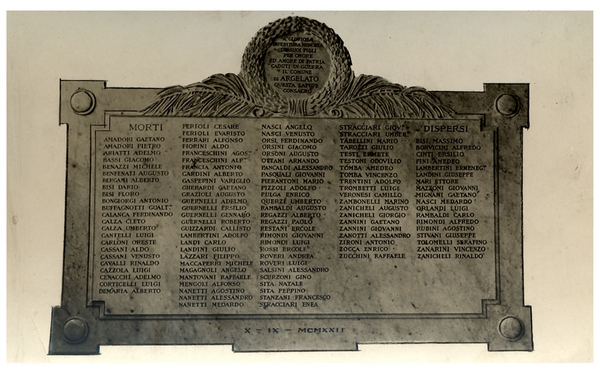 ALLA GLORIOSA
IMPERITURA MEMORIA
PER ONORE
ED AMORE DI PATRIA
CADUTI IN GUERRA
IL COMUNE
DI ARGELATO
QUESTA LAPIDE
CONSACRA
MORTI
AMADORI GAETANO
AMADORI PIETRO
ARIATTI ADELMO
BASSI GIACOMO
BENAZZI MICHELE
BENFENATI AUGUSTO
BERGAMI ALBERTO
BISI DARIO
BISI FLORO
BONGIORGI ANTONIO
BUTTAGNOTTI GUALT°
CALANCA FERDINANDO
CALZA CLETO
CALZA UMBERTO
CANTELLI LUIGI
CARLINI ORESTE
CASSANI ALDO
CASSANI VENUSTO
CAVALLI RINALDO
CAZZOLA LUIGI
CENACCHI ADELMO
CORTICELLI LUIGI
DEMARIA ALBERTO
FERIOLI CESARE
FERIOLI EVARISTO
FERRARI ALFONSO
FIORINI ALDO
FRANCESCHINI AGOS°
FRANCESCHINI ALF°
FRANCIA ANTONIO
GARDINI ALBERTO
GASPERINI VIRGILIO
GHERARDI GAETANO
GRAZIOLI AUGUSTO
GUERNELLI ADELMO
GUERNELLI ERSILIO
GUERNELLI GENNARO
GUERNELLI ROBERTO
GUIZZARDI CALLISTO
LAMBERTINI ADOLFO
LANDI CARLO
LANDINI GIULIO
LAZZARI FILIPPO
MACCAFERRI MICHELE
MAGAGNOLI ANGELO
MANTOVANI RAFFAELE
MENGOLI ALFONSO
NANETTI AGOSTINO
NANETTI ALESSANDRO
NANETTI MEDARDO
NASCI ANGELO
NASCI VENUSTO
ORSI FERDINANDO
ORSINI GIACOMO
ORSONI AUGUSTO
OTTANI ARMANDO
PANCALDI ALESSANDRO
PASQUALI GIOVANNI
PIERANTONI MARIO
PIZZOLI ADOLFO
PULGA ENRICO
QUERZÈ UMBERTO
RAMBALDI AUGUSTO
REGAZZI ALBERTO
REGAZZI PAOLO
RESTANI ERCOLE
RIMONDI GIOVANNI
RIMONDI LUIGI
ROSSI ERCOLE
ROVERI ANDREA
ROVERI LUIGI
SALSINI ALESSANDRO
SCURZONI GINO
SITA NATALE
SITA PEPPINO
STANZANI FRANCESCO
STRACCIARI ENEA
STRACCIARI GIOV°
TABELLINI MARIO
TAROZZI GIULIO
TESTI ERMETE
TESTONI ODOVILIO
TOMBA AMEDEO
TOMBA VINCENZO
TRENTINI ADOLFO
TROMBETTI LUIGI
VERONESI CAMILLO
ZAMBONELLI MARINO
ZANICHELI AUGUSTO
ZANICHELI GIORGIO
ZANNINI GAETANO
ZANNINI GIOVANNI
ZANOTTI ALESSANDRO
ZIRONI ANTONIO
ZOCCA ENRICO
ZUCCHINI RAFFAELE
DISPERSI
BISI MASSIMO
CINTI ERSILIO
LANDINI GIUSEPPE
MARI ETTORE
MAZZONI GIOVANNI
MIGNANI GAETANO
NASCI MEDARDO
ORLANDI LUIGI
RAMBALDI CARLO
RIMONDI ALFREDO
RUBINI AGOSTINO
STIVANI GIUSEPPE
TOLOMELLI SERAFINO
ZANARINI VINCENZO
ZANICHELI RINALDO
X - IX - MCMXXII